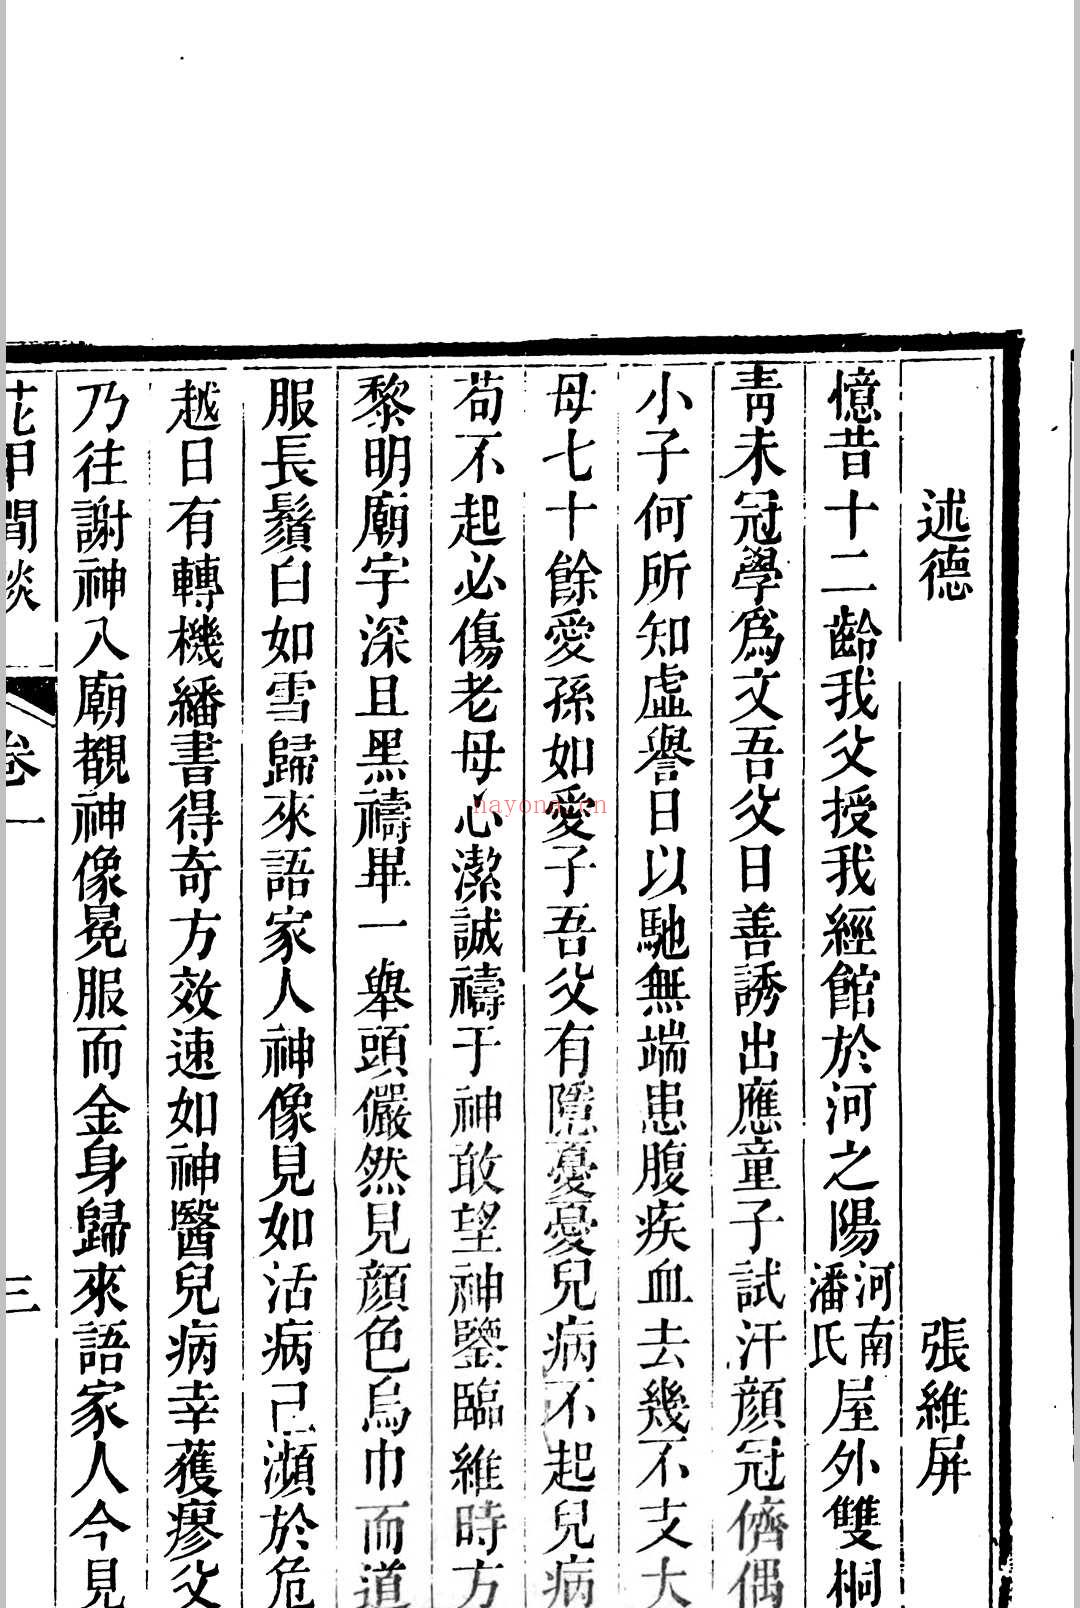 述德　張維屏
憶昔十二齡我父授我經館於河之陽河南潘氏屋外雙桐
青未冠學爲文吾父日善誘出應童子試汗顏冠儕偶
小子何所知虛譽日以馳無端患腹疾血去幾不支大
母七十餘愛孫如愛子吾父有隱憂憂兒病不起兒病
茍不起必傷老母心潔誠禱于神敢望神鑒臨維時方
黎明廟宇深且黑禱畢一舉頭儼然見顏色烏巾而道
服長鬚白如雪歸來語家人神像見如活病已瀕於危
越日有轉機繙書得奇方效速如神醫兒病幸獲瘳父
乃往謝神入廟覩神像冕服而金身歸來語家人今見
花甲閒談　卷一　三
nayona.cn